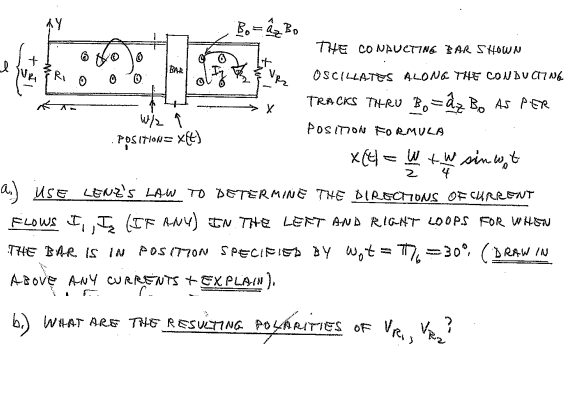 Y
B₀ = â_z B₀
l
+
V_R₁
-
R₁
BAR
I₂
R₂
+
V_R₂
-
X
W/2
POSITION = X(t)
THE CONDUCTING BAR SHOWN
OSCILLATES ALONG THE CONDUCTING
TRACKS THRU B₀ = â_z B₀ AS PER
POSITION FORMULA
X(t) = W/2 + W/4 sin ω₀t
a.) USE LENZ'S LAW TO DETERMINE THE DIRECTIONS OF CURRENT
FLOWS I₁, I₂ (IF ANY) IN THE LEFT AND RIGHT LOOPS FOR WHEN
THE BAR IS IN POSITION SPECIFIED BY ω₀t = π/6 = 30°. (DRAW IN
ABOVE ANY CURRENTS + EXPLAIN).
b.) WHAT ARE THE RESULTING POLARITIES OF V_R₁, V_R₂?